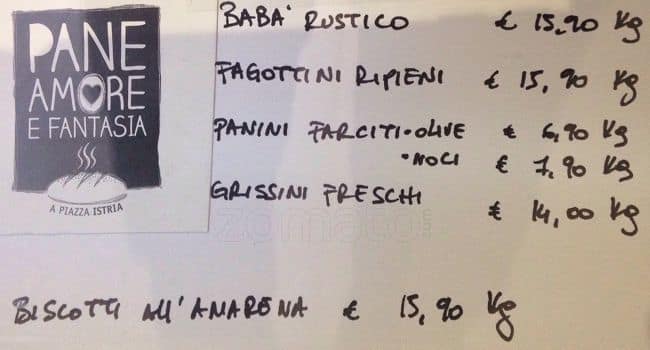 PANE
AMORE
E FANTASIA
A PIAZZA ISTRIA
BABA' RUSTICO € 15,90 Kg
FAGOTTINI RIPIENI € 15,90 Kg
PANINI FARCITI • OLIVE € 6,90 Kg
• NOCI € 7,90 Kg
GRISSINI FRESCHI € 14,00 Kg
zomato
BISCOTTI All'AMARENA € 15,90 Kg